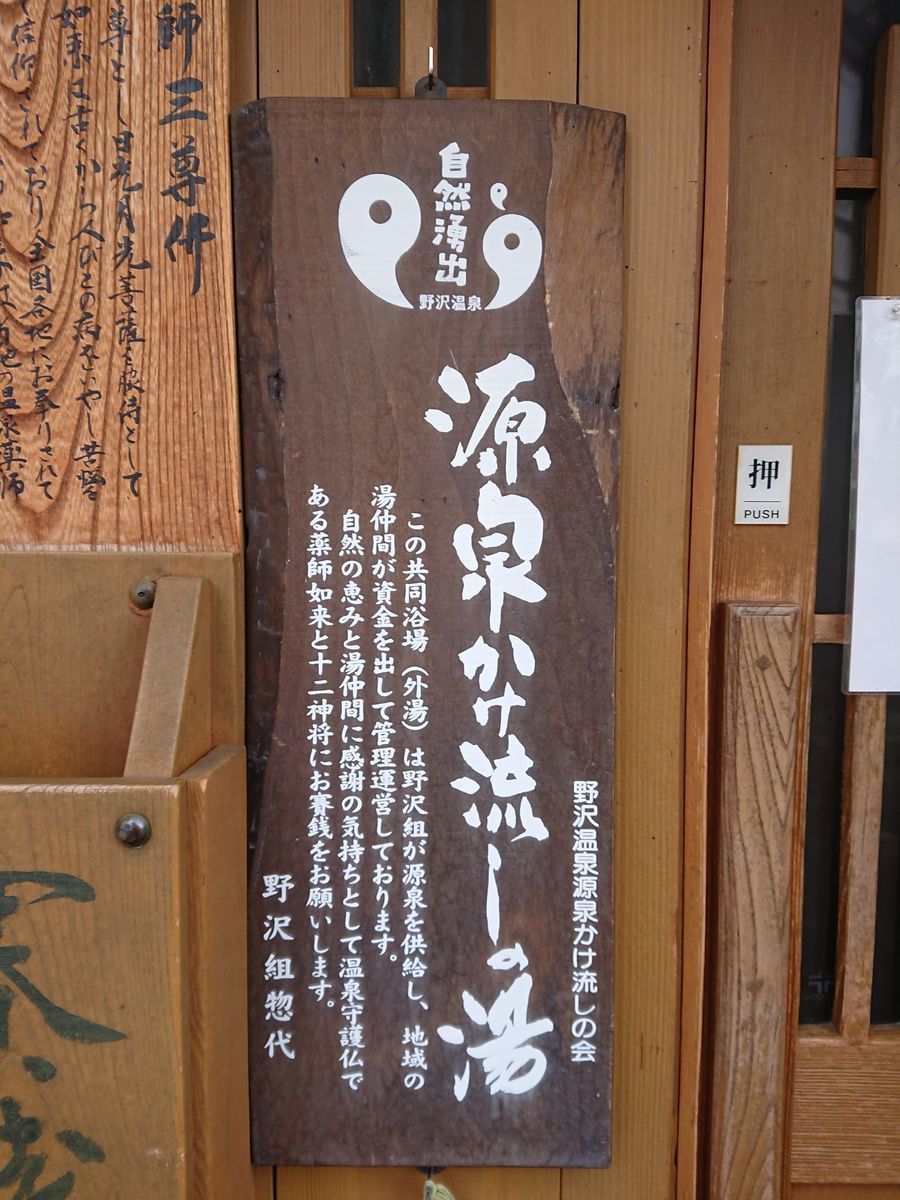 自然湧出
野沢温泉
源泉かけ流しの湯
野沢温泉源泉かけ流しの会
この共同浴場（外湯）は野沢組が源泉を供給し、地域の
湯仲間が資金を出して管理運営しております。
自然の恵みと湯仲間に感謝の気持ちとして温泉守護仏で
ある薬師如来と十二神将にお賽銭をお願いします。
野沢組惣代
押
PUSH
師三尊佛
尊とし日光月光菩薩を脇侍として
如来は古くから人びとの病をいやし苦
て信仰されており全国各地にお奉りされて
の温泉薬師